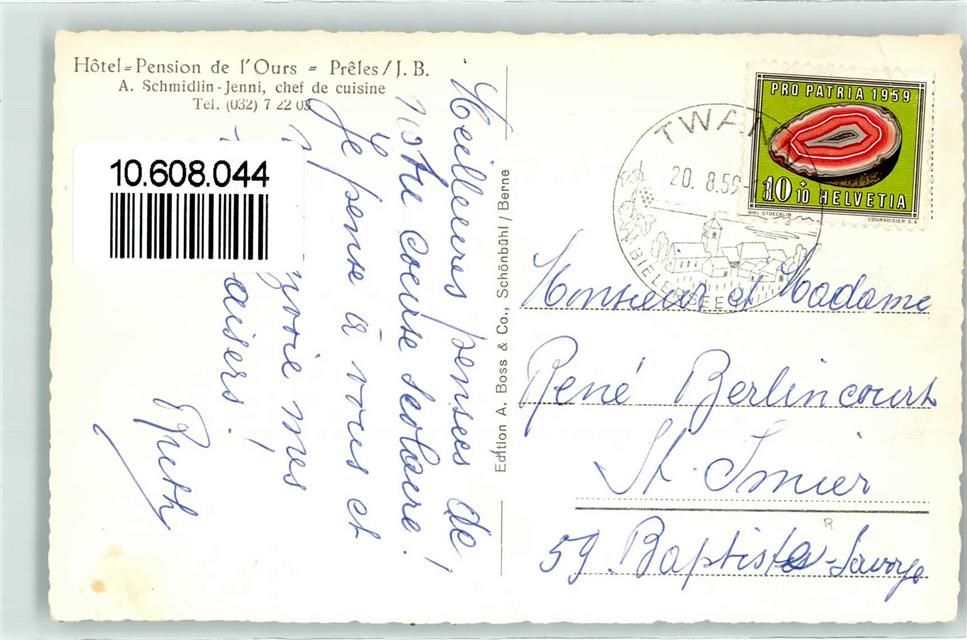 Hôtel-Pension de l'Ours - Prêles/J. B.
A. Schmidlin-Jenni, chef de cuisine
Tel. (032) 7 22 03
10.608.044
Meilleures pensées de
notre course scolaire!
Je pense à vous et
mes
Ruth
Edition A. Boss & Co., Schönbühl / Berne
TWANN
20. 8.59-
BIELERSEE
PRO PATRIA 1959
10+10 HELVETIA
NIKL STOECKLIN
COURVOISIER S.A.
Monsieur et Madame
René Berlincourt
St. Imier
59 Baptiste-Savoye